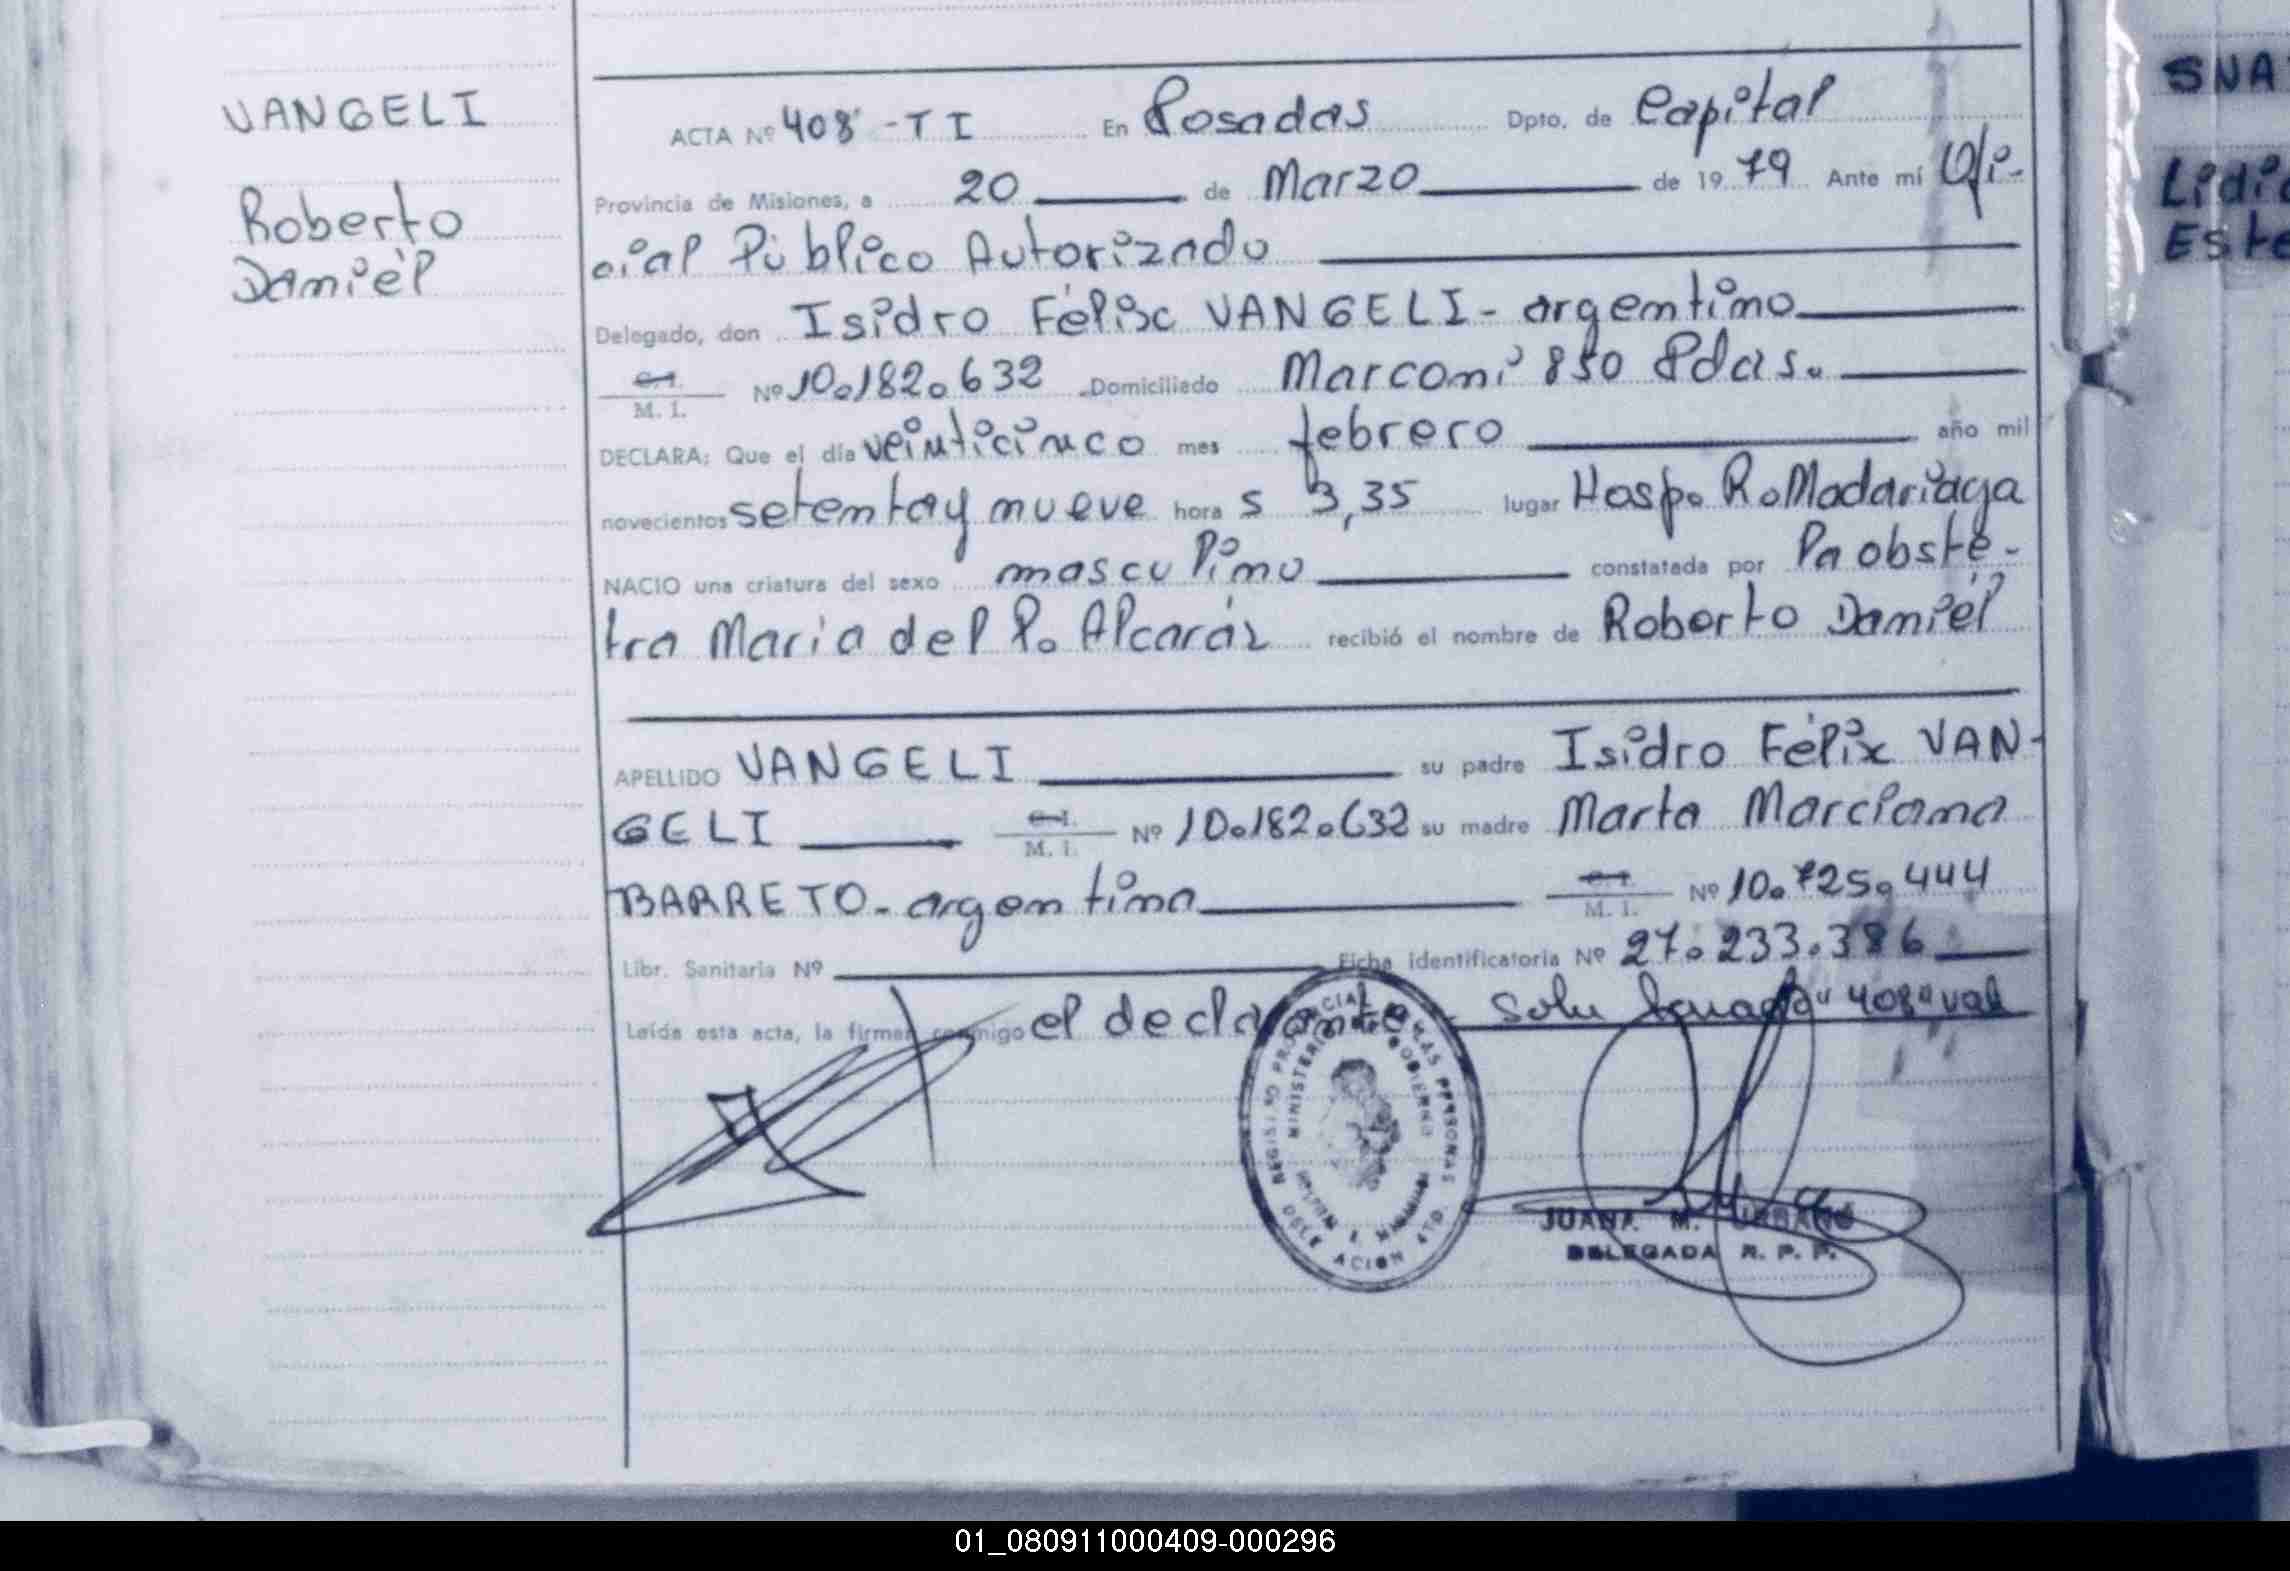 VANGELI
Roberto
Daniél
ACTA Nº 408 - T I En Posadas Dpto. de Capital
Provincia de Misiones, a 20 de Marzo de 19 79 Ante mí Ofi-
cial Público Autorizado
Delegado, don Isidro Félix VANGELI - argentino
C.I.
M. I. Nº 10.182.632 Domiciliado Marconi 850 Pdas.
DECLARA: Que el día veinticinco mes febrero año mil
novecientos setenta y nueve hora s 3,35 lugar Hosp. R. Madariaga
NACIO una criatura del sexo masculino constatada por la obsté-
tra María del P. Alcaráz recibió el nombre de Roberto Daniél
APELLIDO VANGELI su padre Isidro Félix VAN-
GELI C.I.
M. I. Nº 10.182.632 su madre Marta Marciana
BARRETO - argentina C.I.
M. I. Nº 10.725.444
Libr. Sanitaria Nº Ficha identificatoria Nº 27.233.386
Leída esta acta, la firman conmigo el declarante - "408" vale
REGISTRO PROVINCIAL DE LAS PERSONAS
MINISTERIO DE GOBIERNO
DELEGACION
JUANA M. URBANO
DELEGADA R. P. P.
SNA
Lidia
Este
01_080911000409-000296